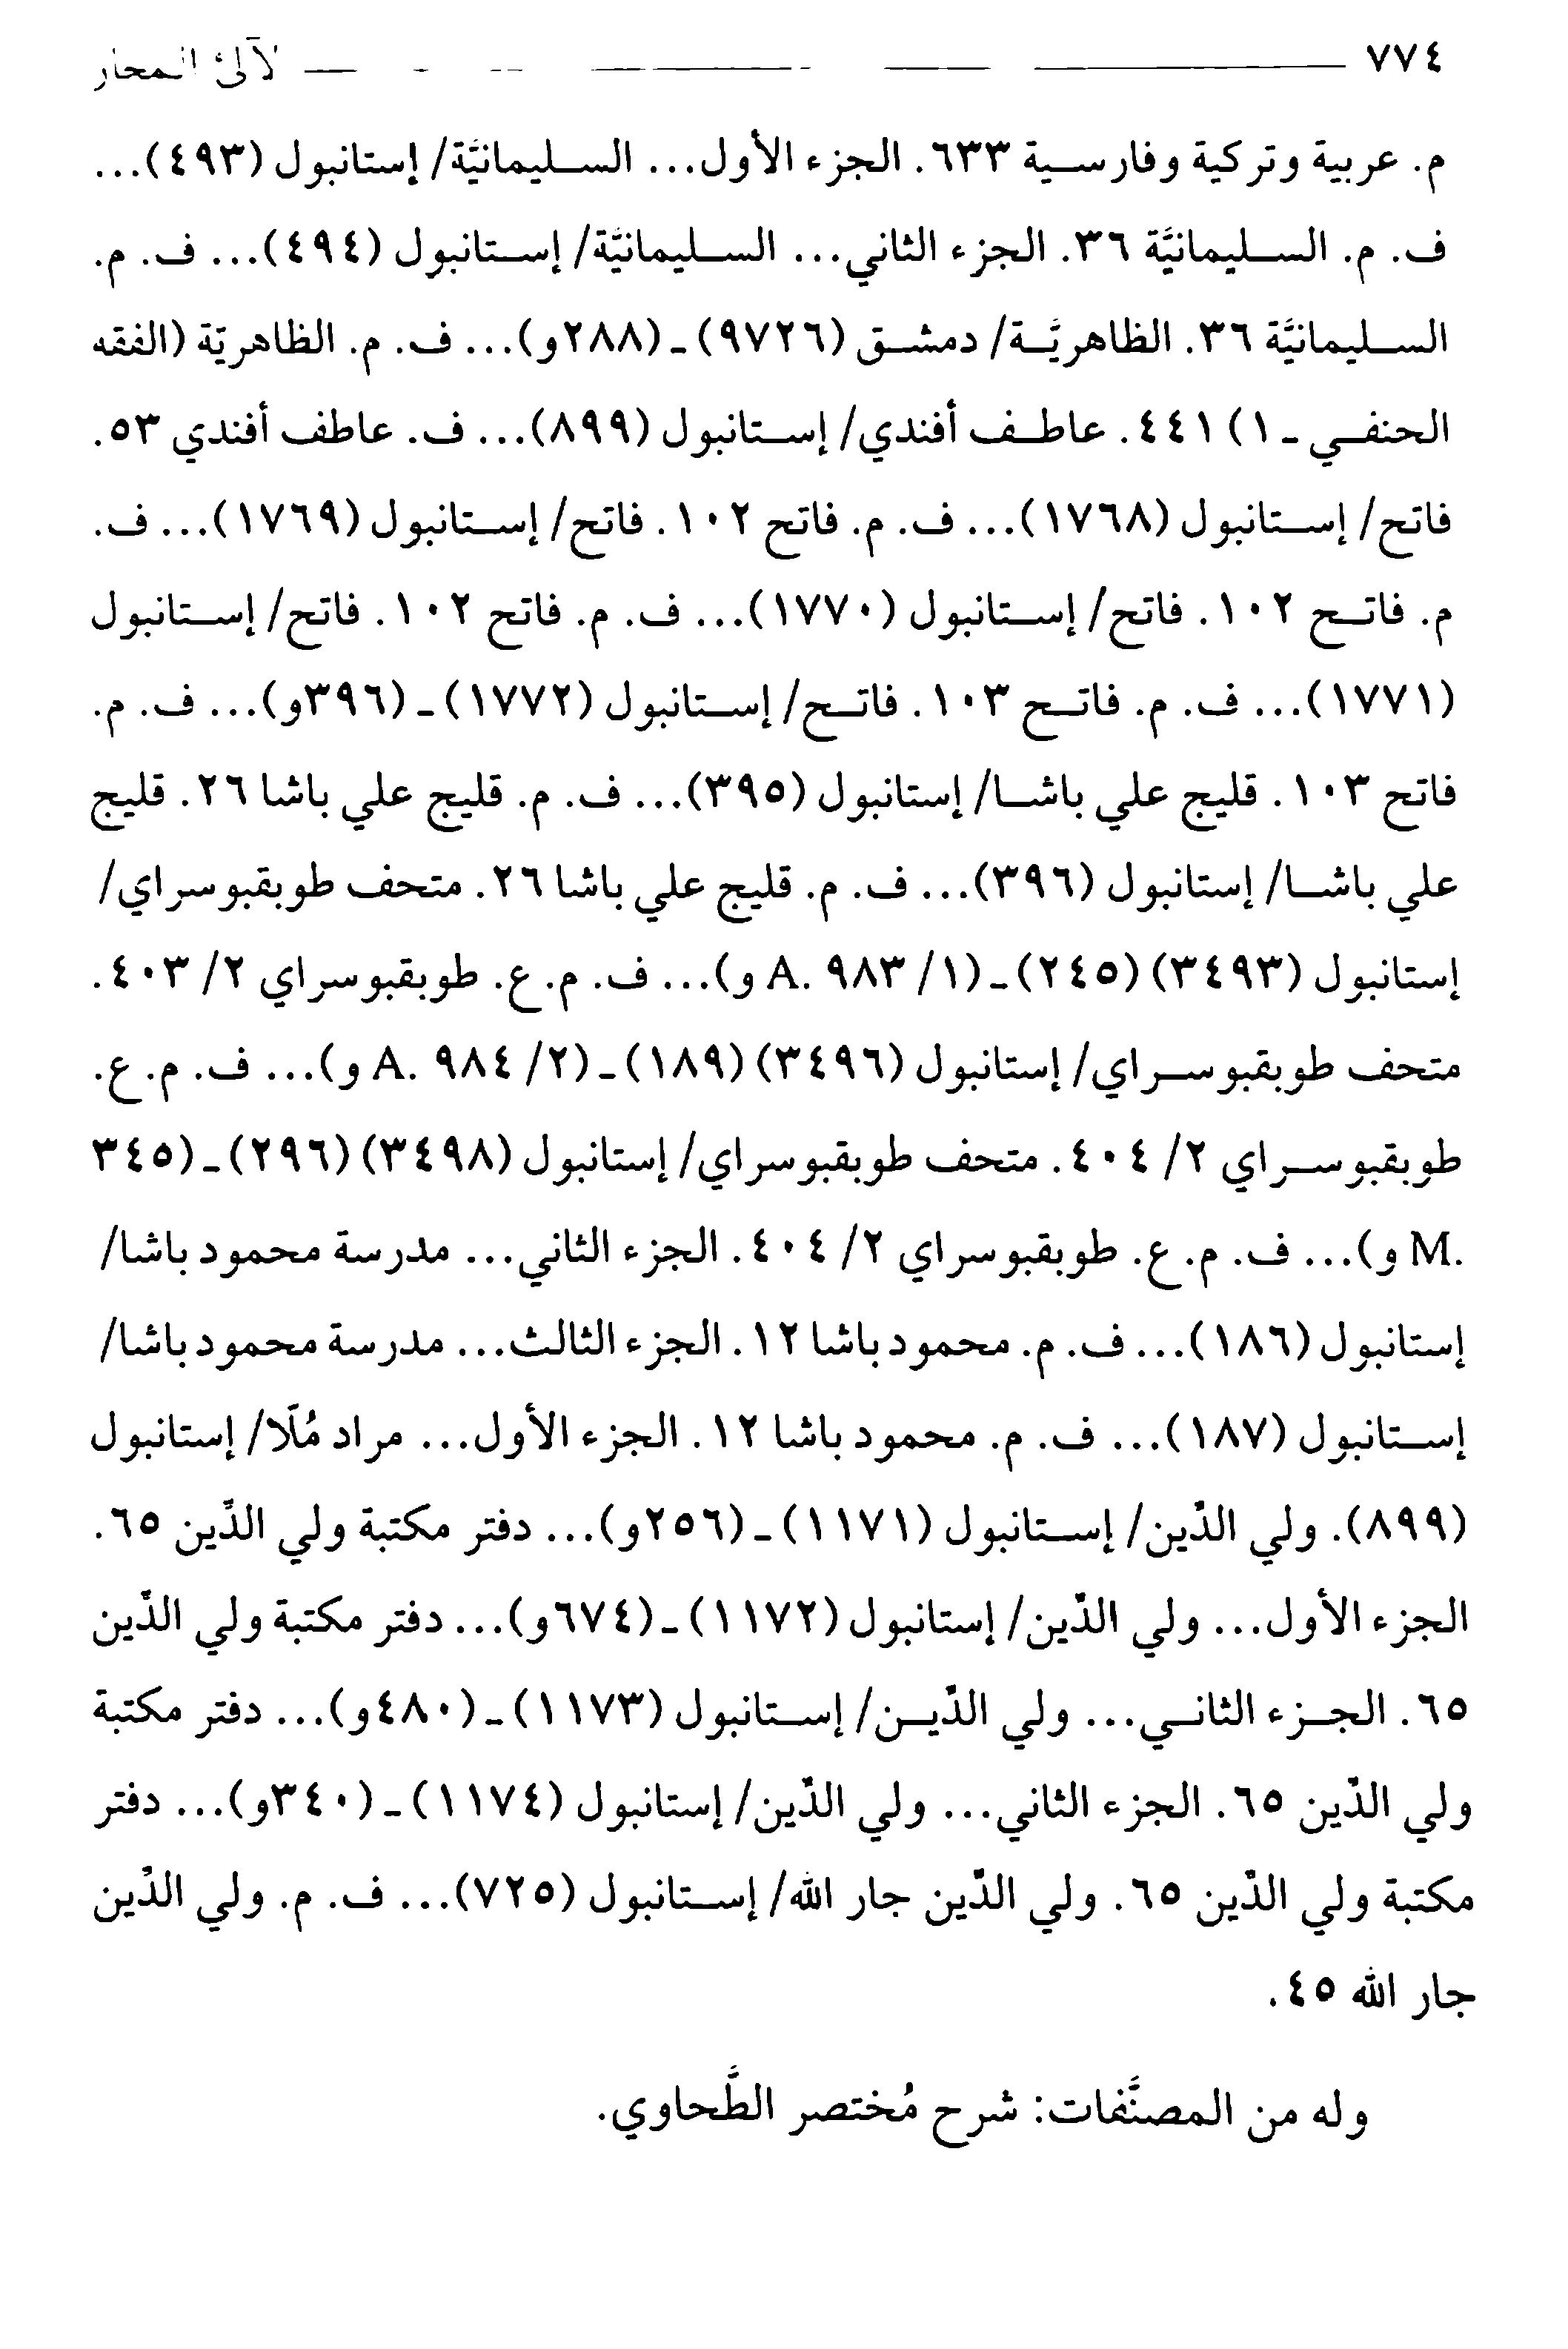 ٧٧٤ لآلئ المحار
م. عربية وتركية وفارسية ٦٣٣. الجزء الأول... السليمانيَّة/ إستانبول (٤٩٣)...
ف. م. السليمانيَّة ٣٦. الجزء الثاني... السليمانيَّة/ إستانبول (٤٩٤)... ف. م.
السليمانيَّة ٣٦. الظاهريَّة/ دمشق (٩٧٢٦) ـ (٢٨٨و)... ف. م. الظاهريّة (الفقه
الحنفي ـ ١) ٤٤١. عاطف أفندي/ إستانبول (٨٩٩)... ف. عاطف أفندي ٥٣.
فاتح/ إستانبول (١٧٦٨)... ف. م. فاتح ١٠٢. فاتح/ إستانبول (١٧٦٩)... ف.
م. فاتح ١٠٢. فاتح/ إستانبول (١٧٧٠)... ف. م. فاتح ١٠٢. فاتح/ إستانبول
(١٧٧١)... ف. م. فاتح ١٠٣. فاتح/ إستانبول (١٧٧٢) ـ (٣٩٦و)... ف. م.
فاتح ١٠٣. قليج علي باشا/ إستانبول (٣٩٥)... ف. م. قليج علي باشا ٢٦. قليج
علي باشا/ إستانبول (٣٩٦)... ف. م. قليج علي باشا ٢٦. متحف طوبقبوسراي/
إستانبول (٣٤٩٣) (٢٤٥) ـ (١/ ٩٨٣ .A و)... ف. م.ع. طوبقبوسراي ٢/ ٤٠٣.
متحف طوبقبوسراي/ إستانبول (٣٤٩٦) (١٨٩) ـ (٢/ ٩٨٤ .A و)... ف. م.ع.
طوبقبوسراي ٢/ ٤٠٤. متحف طوبقبوسراي/ إستانبول (٣٤٩٨) (٢٩٦) ـ (٣٤٥
.M و)... ف. م.ع. طوبقبوسراي ٢/ ٤٠٤. الجزء الثاني... مدرسة محمود باشا/
إستانبول (١٨٦)... ف. م. محمود باشا ١٢. الجزء الثالث... مدرسة محمود باشا/
إستانبول (١٨٧)... ف. م. محمود باشا ١٢. الجزء الأول... مراد مُلّا/ إستانبول
(٨٩٩). ولي الدّين/ إستانبول (١١٧١) ـ (٢٥٦و)... دفتر مكتبة ولي الدِّين ٦٥.
الجزء الأول... ولي الدّين/ إستانبول (١١٧٢) ـ (٦٧٤و)... دفتر مكتبة ولي الدّين
٦٥. الجزء الثاني... ولي الدّين/ إستانبول (١١٧٣) ـ (٤٨٠و)... دفتر مكتبة
ولي الدّين ٦٥. الجزء الثاني... ولي الدّين/ إستانبول (١١٧٤) ـ (٣٤٠و)... دفتر
مكتبة ولي الدّين ٦٥. ولي الدّين جار الله/ إستانبول (٧٢٥)... ف. م. ولي الدِّين
جار الله ٤٥.
وله من المصنَّفات: شرح مُختصر الطَّحاوي.